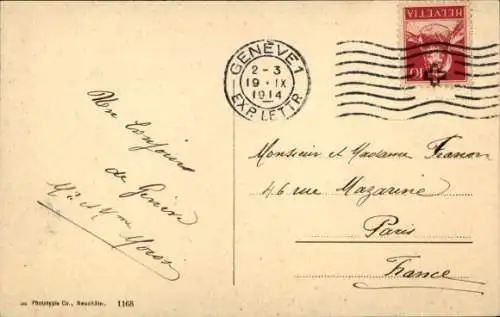 HELVETIA
10
GENÈVE 1
2-3
19·IX
1914
EXP. LETTR.
Un bonjour
de Genève
Mr et Mme
Monsieur et Madame
46 rue Mazarine
Paris
France
Phototypie Co., Neuchâtel. 1168